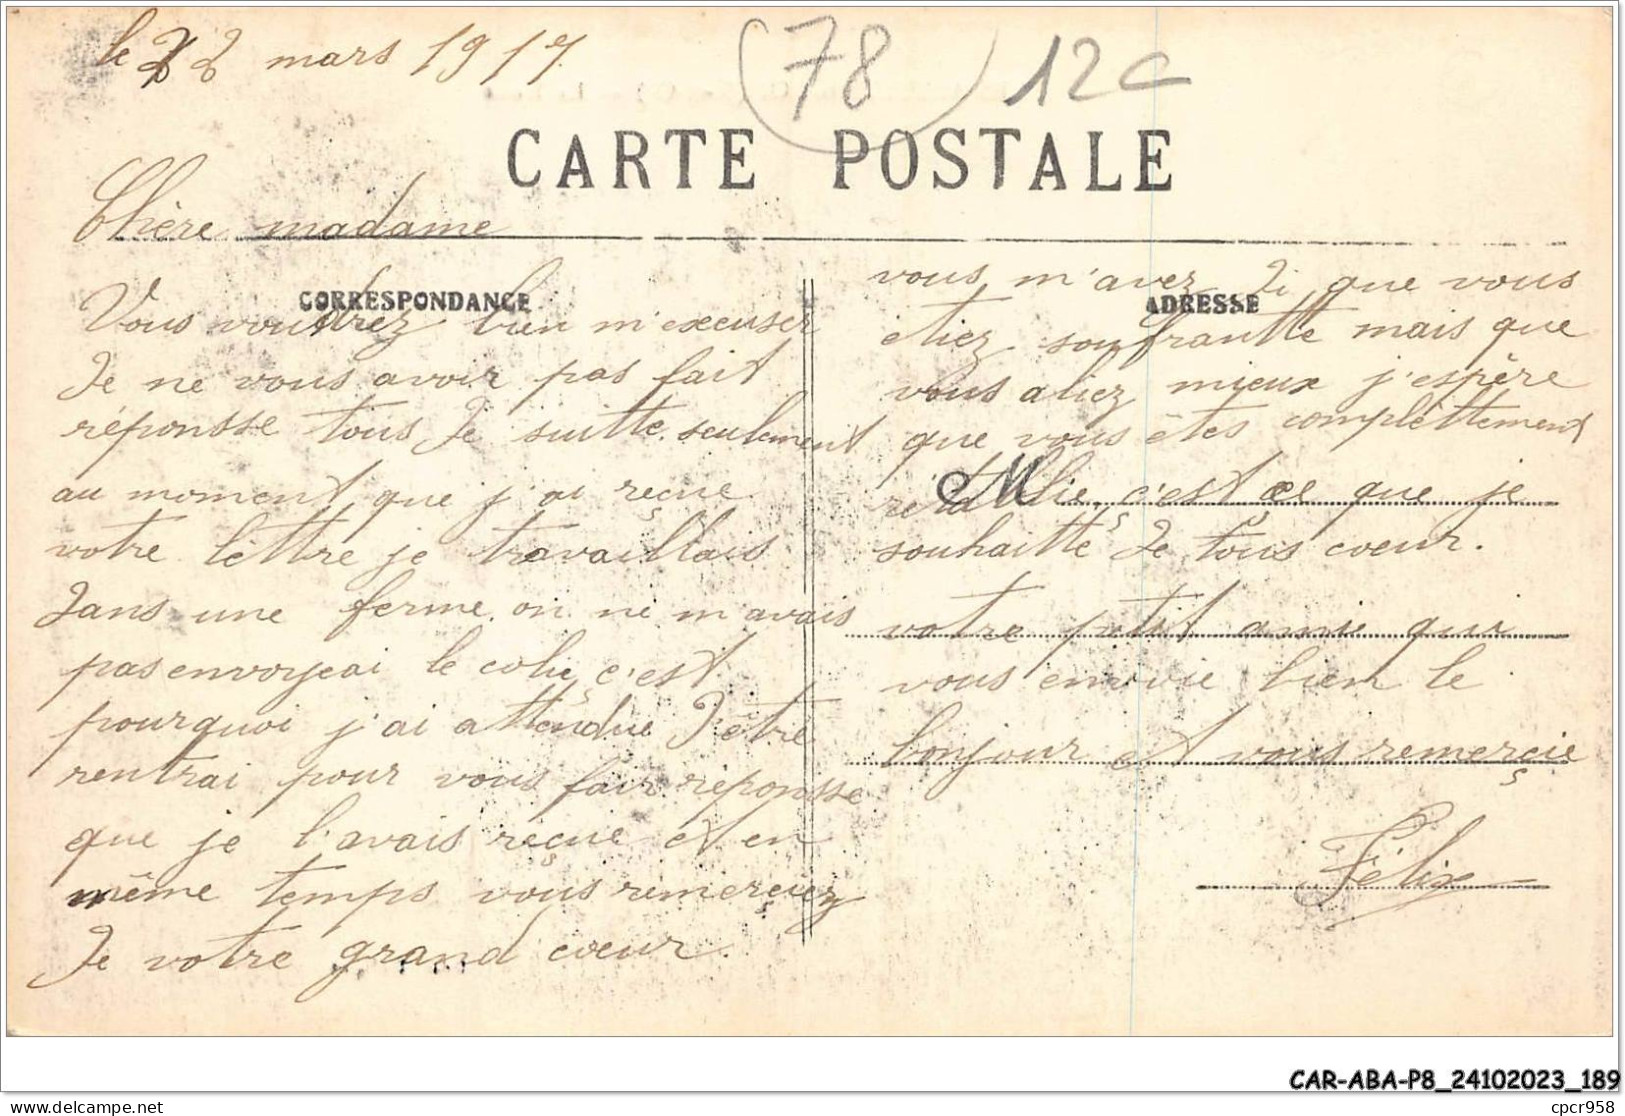 le 22 mars 1917
(78) 12c
CARTE POSTALE
Chère madame
CORRESPONDANCE
Vous voudrez bien m'excuser
de ne vous avoir pas fait
réponsse tous de suitte seulement
au moment que j'ai reçue
votre lèttre je travaillais
dans une ferme on ne m'avais
pas envoyeai le colie c'est
pourquoi j'ai attendue d'être
rentrai pour vous fair réponsse
que je l'avais reçue et en
même temps vous remerçiez
de votre grand coeur.
ADRESSE
vous m'avez di que vous
etiez souffrantte mais que
vous aliez mieux j'espère
que vous êtes complêttement
rétablie, c'est ce que je
souhaitte de tous coeur.
votre petit amie qui
vous envoie bien le
bonjour et vous remerçie
Félix
CAR-ABA-P8_24102023_189
delcampe.net
cpcr958